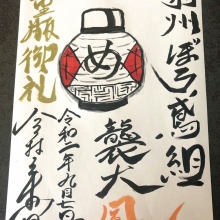 羽州ぼろ鳶組
襲大鳳
め
重版御礼
令和二年九月七日
今村翔吾